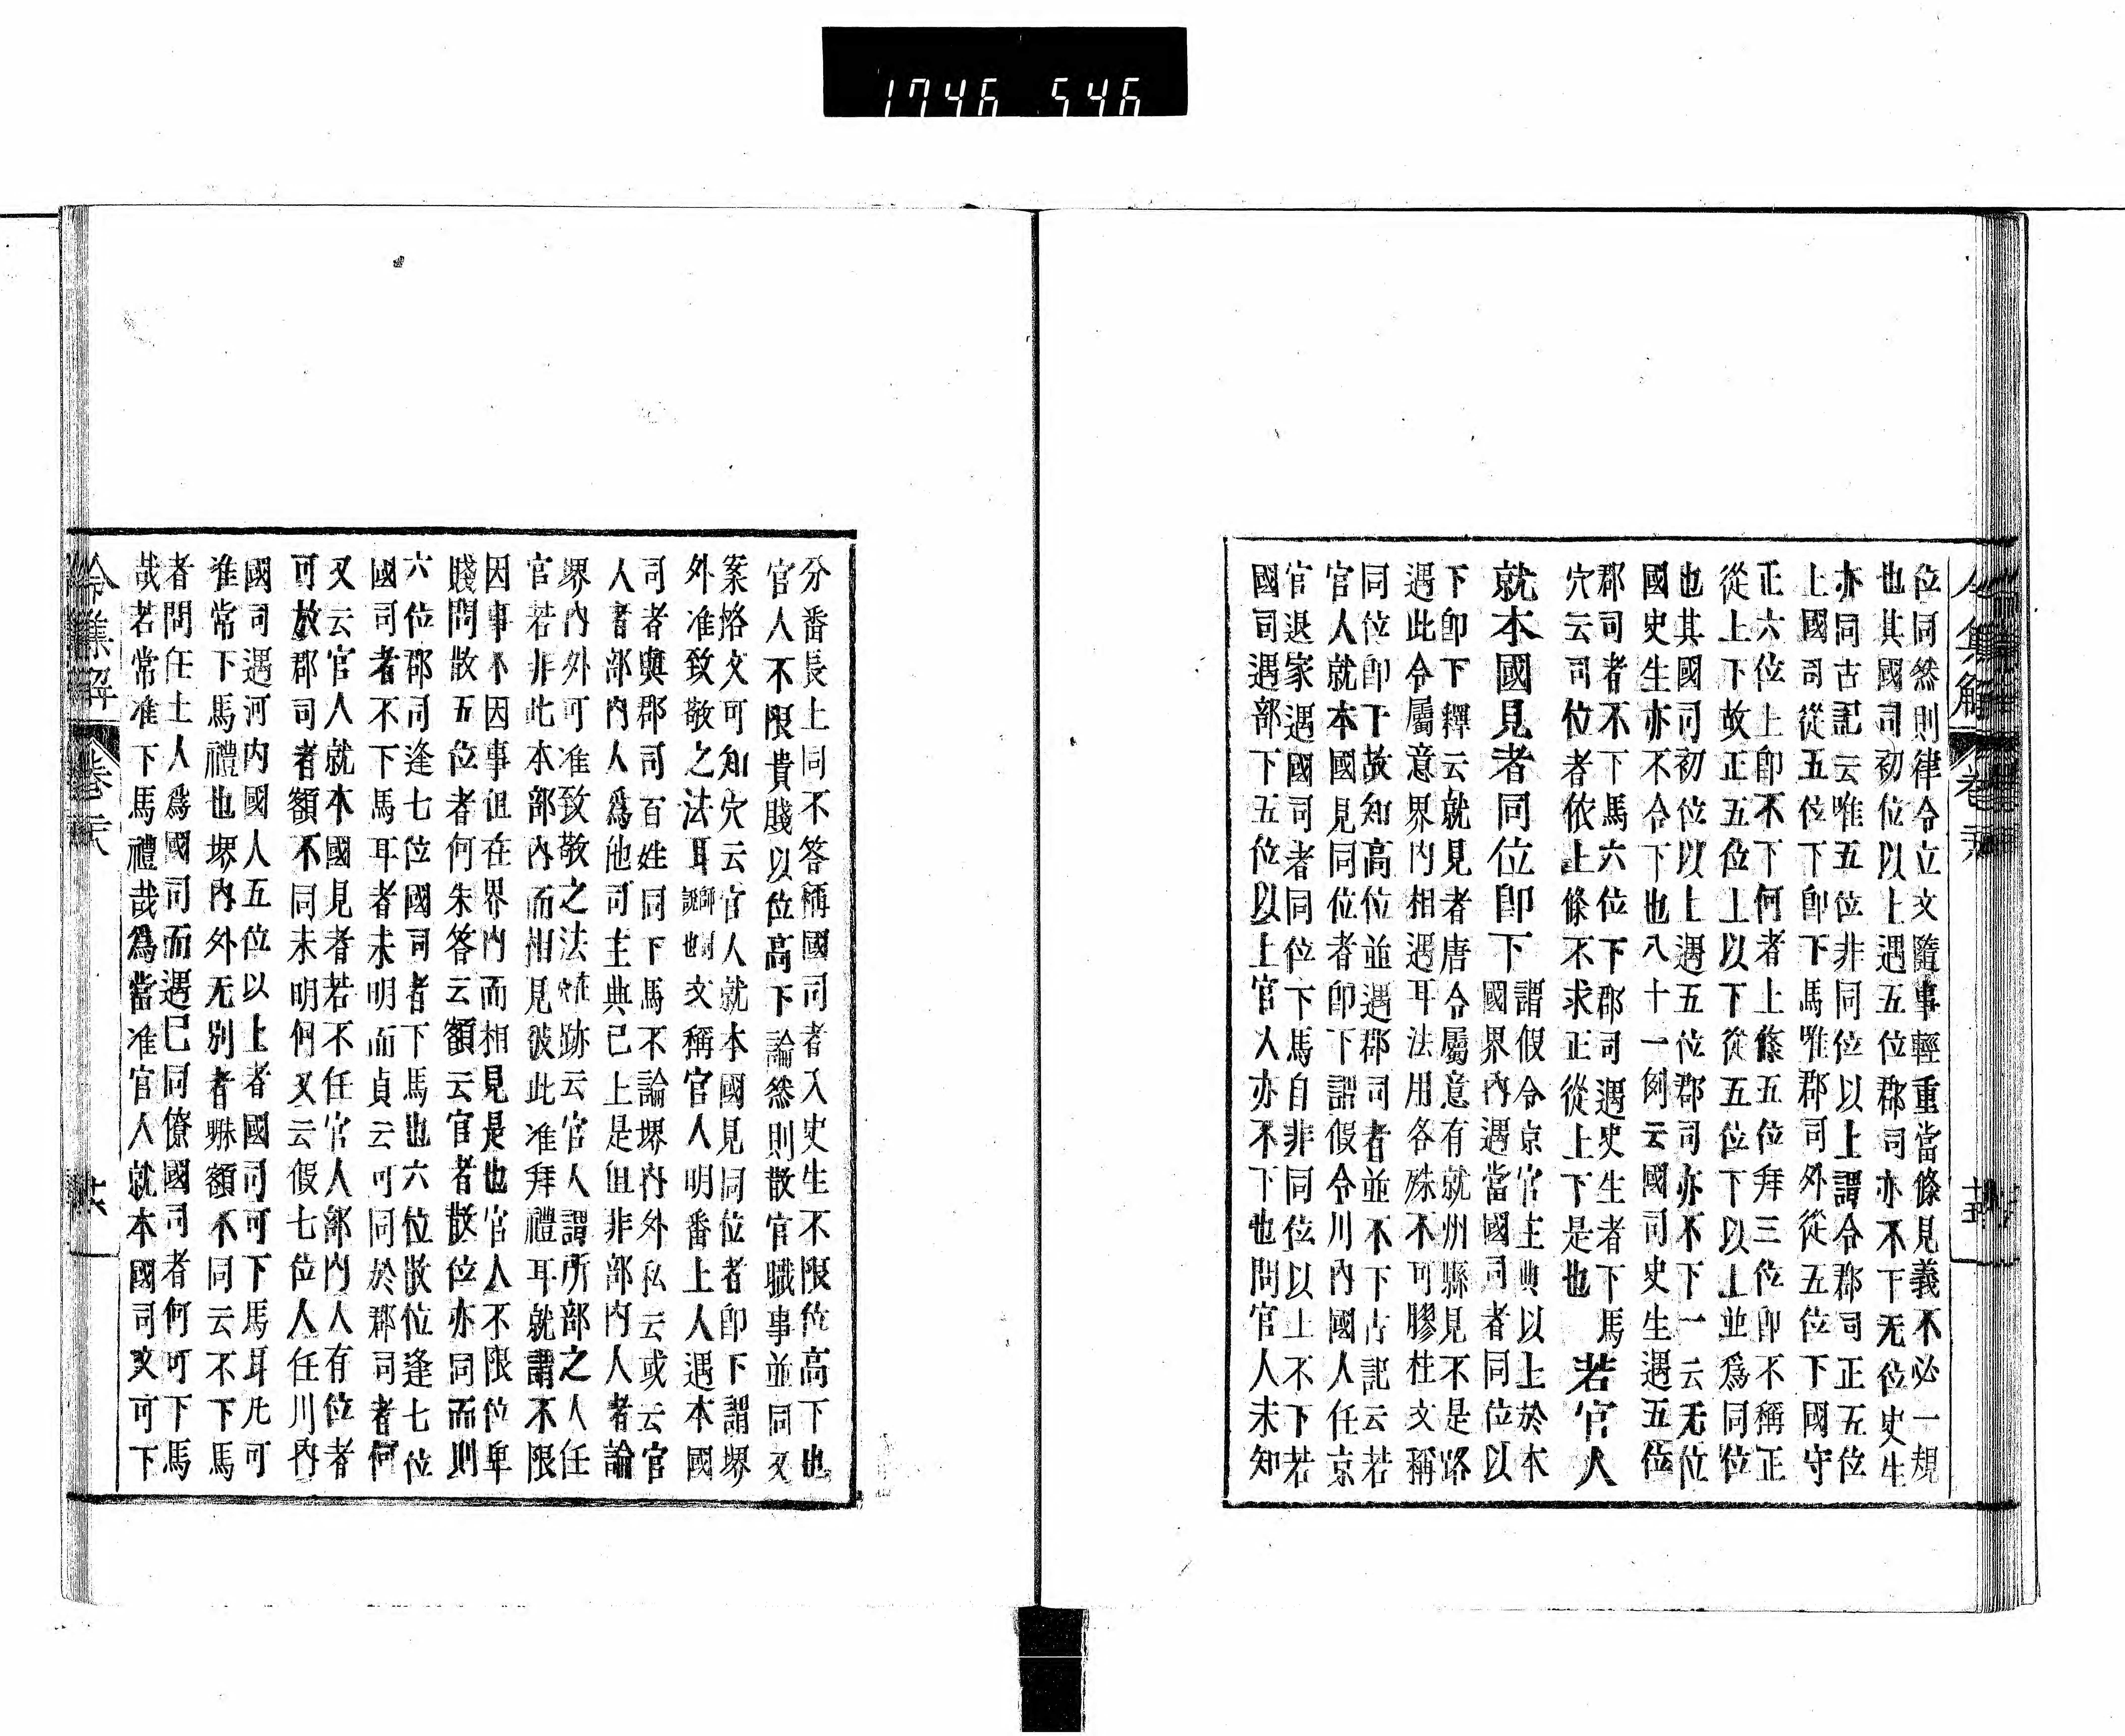 1746 546
位同然則律令立文隨事輕重當條見義不必一規
也其國司初位以上遇五位郡司亦不下无位史生
亦同古記云唯五位非同位以上謂令郡司正五位
上國司從五位下卽下馬唯郡司外從五位下國守
正六位上卽不下何者上條五位拜三位卽不稱正
從上下故正五位上以下從五位下以上並爲同位
也其國司初位以上遇五位郡司亦不下一云无位
國史生亦不令下也八十一例云國司史生遇五位
郡司者不下馬六位下郡司遇史生者下馬
穴云司位者依上條不求正從上下是也
若官人
就本國見者同位卽下
謂假令京官主典以上於本
國界內遇當國司者同位以
下卽下釋云就見者唐令屬意有就州縣見不是路
遇此令屬意界內相遇耳法用各殊不可膠柱文稱
同位卽下故知高位並遇郡司者並不下古記云若
官人就本國見同位者卽下謂假令川內國人任京
官退家遇國司者同位下馬自非同位以上不下若
國司遇部下五位以上官人亦不下也問官人未知
令集解 卷 
分番長上同不答稱國司者入史生不限位高下也
官人不限貴賤以位高下論然則散官職事並同又
案格文可知穴云官人就本國見同位者卽下謂堺
外准致敬之法耳
師同
說也
文稱官人明番上人遇本國
司者與郡司百姓同下馬不論堺內外私云或云官
人者部內人爲他司主典已上是但非部內人者論
堺內外可准致敬之法雖跡云官人謂所部之人任
官若非此本部內而相見彼此准拜禮耳就謂不限
因事不因事但在界內而相見是也官人不限位卑
賤問散五位者何朱答云額云官者散位亦同而則
六位郡司逢七位國司者下馬也六位散位逢七位
國司者不下馬耳者未明而貞云可同於郡司者何
又云官人就本國見者若不任官人部內人有位者
可放郡司者額不同未明何又云假七位人任川內
國司遇河內國人五位以上者國司可下馬耳凡可
准常下馬禮也堺內外无別者縣額不同云不下馬
者問任土人爲國司而遇已同僚國司者何可下馬
哉若常准下馬禮哉爲當准官人就本國司文可下
令集解 卷